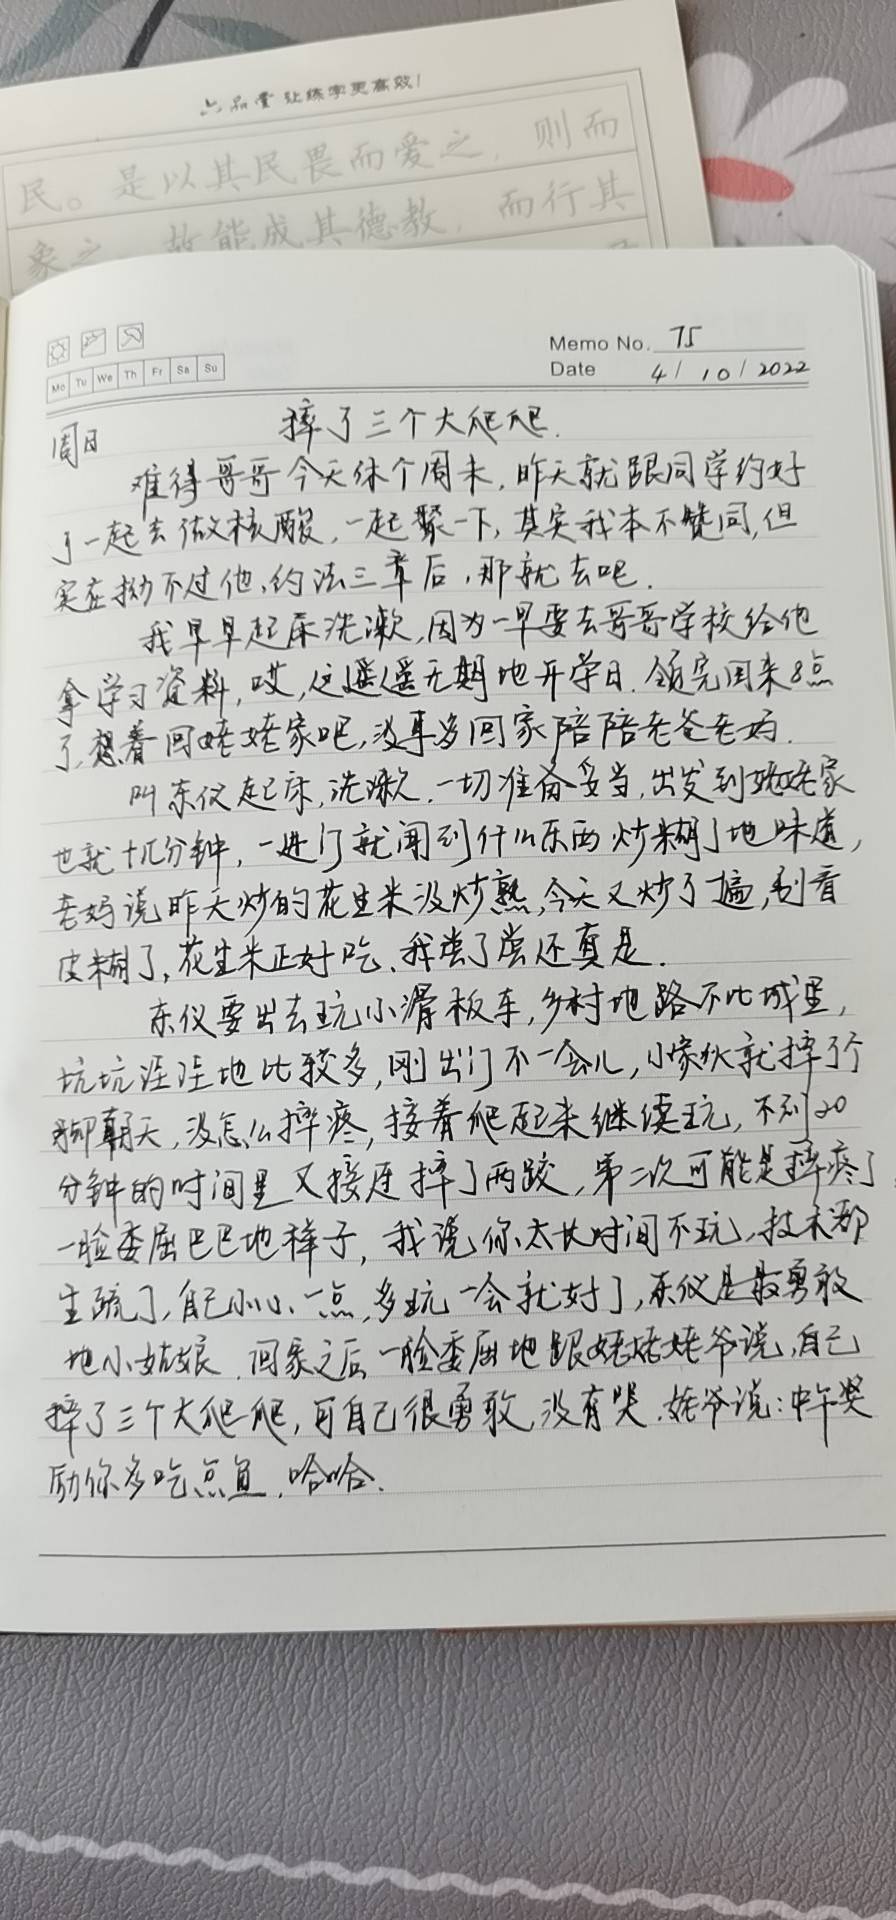 六品堂 让练字更高效!
民。是以其民畏而爱之,则而
象之,故能成其德教,而行其
Mo Tu We Th Fr Sa Su
Memo No. 75
Date 4/10/2022
周日
摔了三个大爬爬.
难得哥哥今天休个周末,昨天就跟同学约好
了一起去做核酸,一起聚一下,其实我本不赞同,但
实在拗不过他,约法三章后,那就去吧.
我早早起床洗漱,因为一早要去哥哥学校给他
拿学习资料,哎,这遥遥无期地开学日.领完回来8点
了,想着回姥姥家吧,没事多回家陪陪老爸老妈.
叫东仪起床,洗漱.一切准备妥当,出发到姥姥家
也就十几分钟,一进门就闻到什么东西炒糊了地味道,
老妈说昨天炒的花生米没炒熟,今天又炒了遍,别看
皮糊了,花生米正好吃,我尝了尝还真是.
东仪要出去玩小滑板车,乡村地路不比城里,
坑坑洼洼地比较多,刚出门不一会儿,小家伙就摔了个
脚朝天,没怎么摔疼,接着爬起来继续玩,不到20
分钟的时间里又接连摔了两跤,第二次可能是摔疼了,
一脸委屈巴巴地样子,我说你太长时间不玩,技术都
生疏了,自己小心一点,多玩一会就好了,东仪是最勇敢
地小姑娘.回家之后一脸委屈地跟姥姥姥爷说,自己
摔了三个大爬爬,可自己很勇敢,没有哭.姥爷说:中午奖
励你多吃点鱼,哈哈.